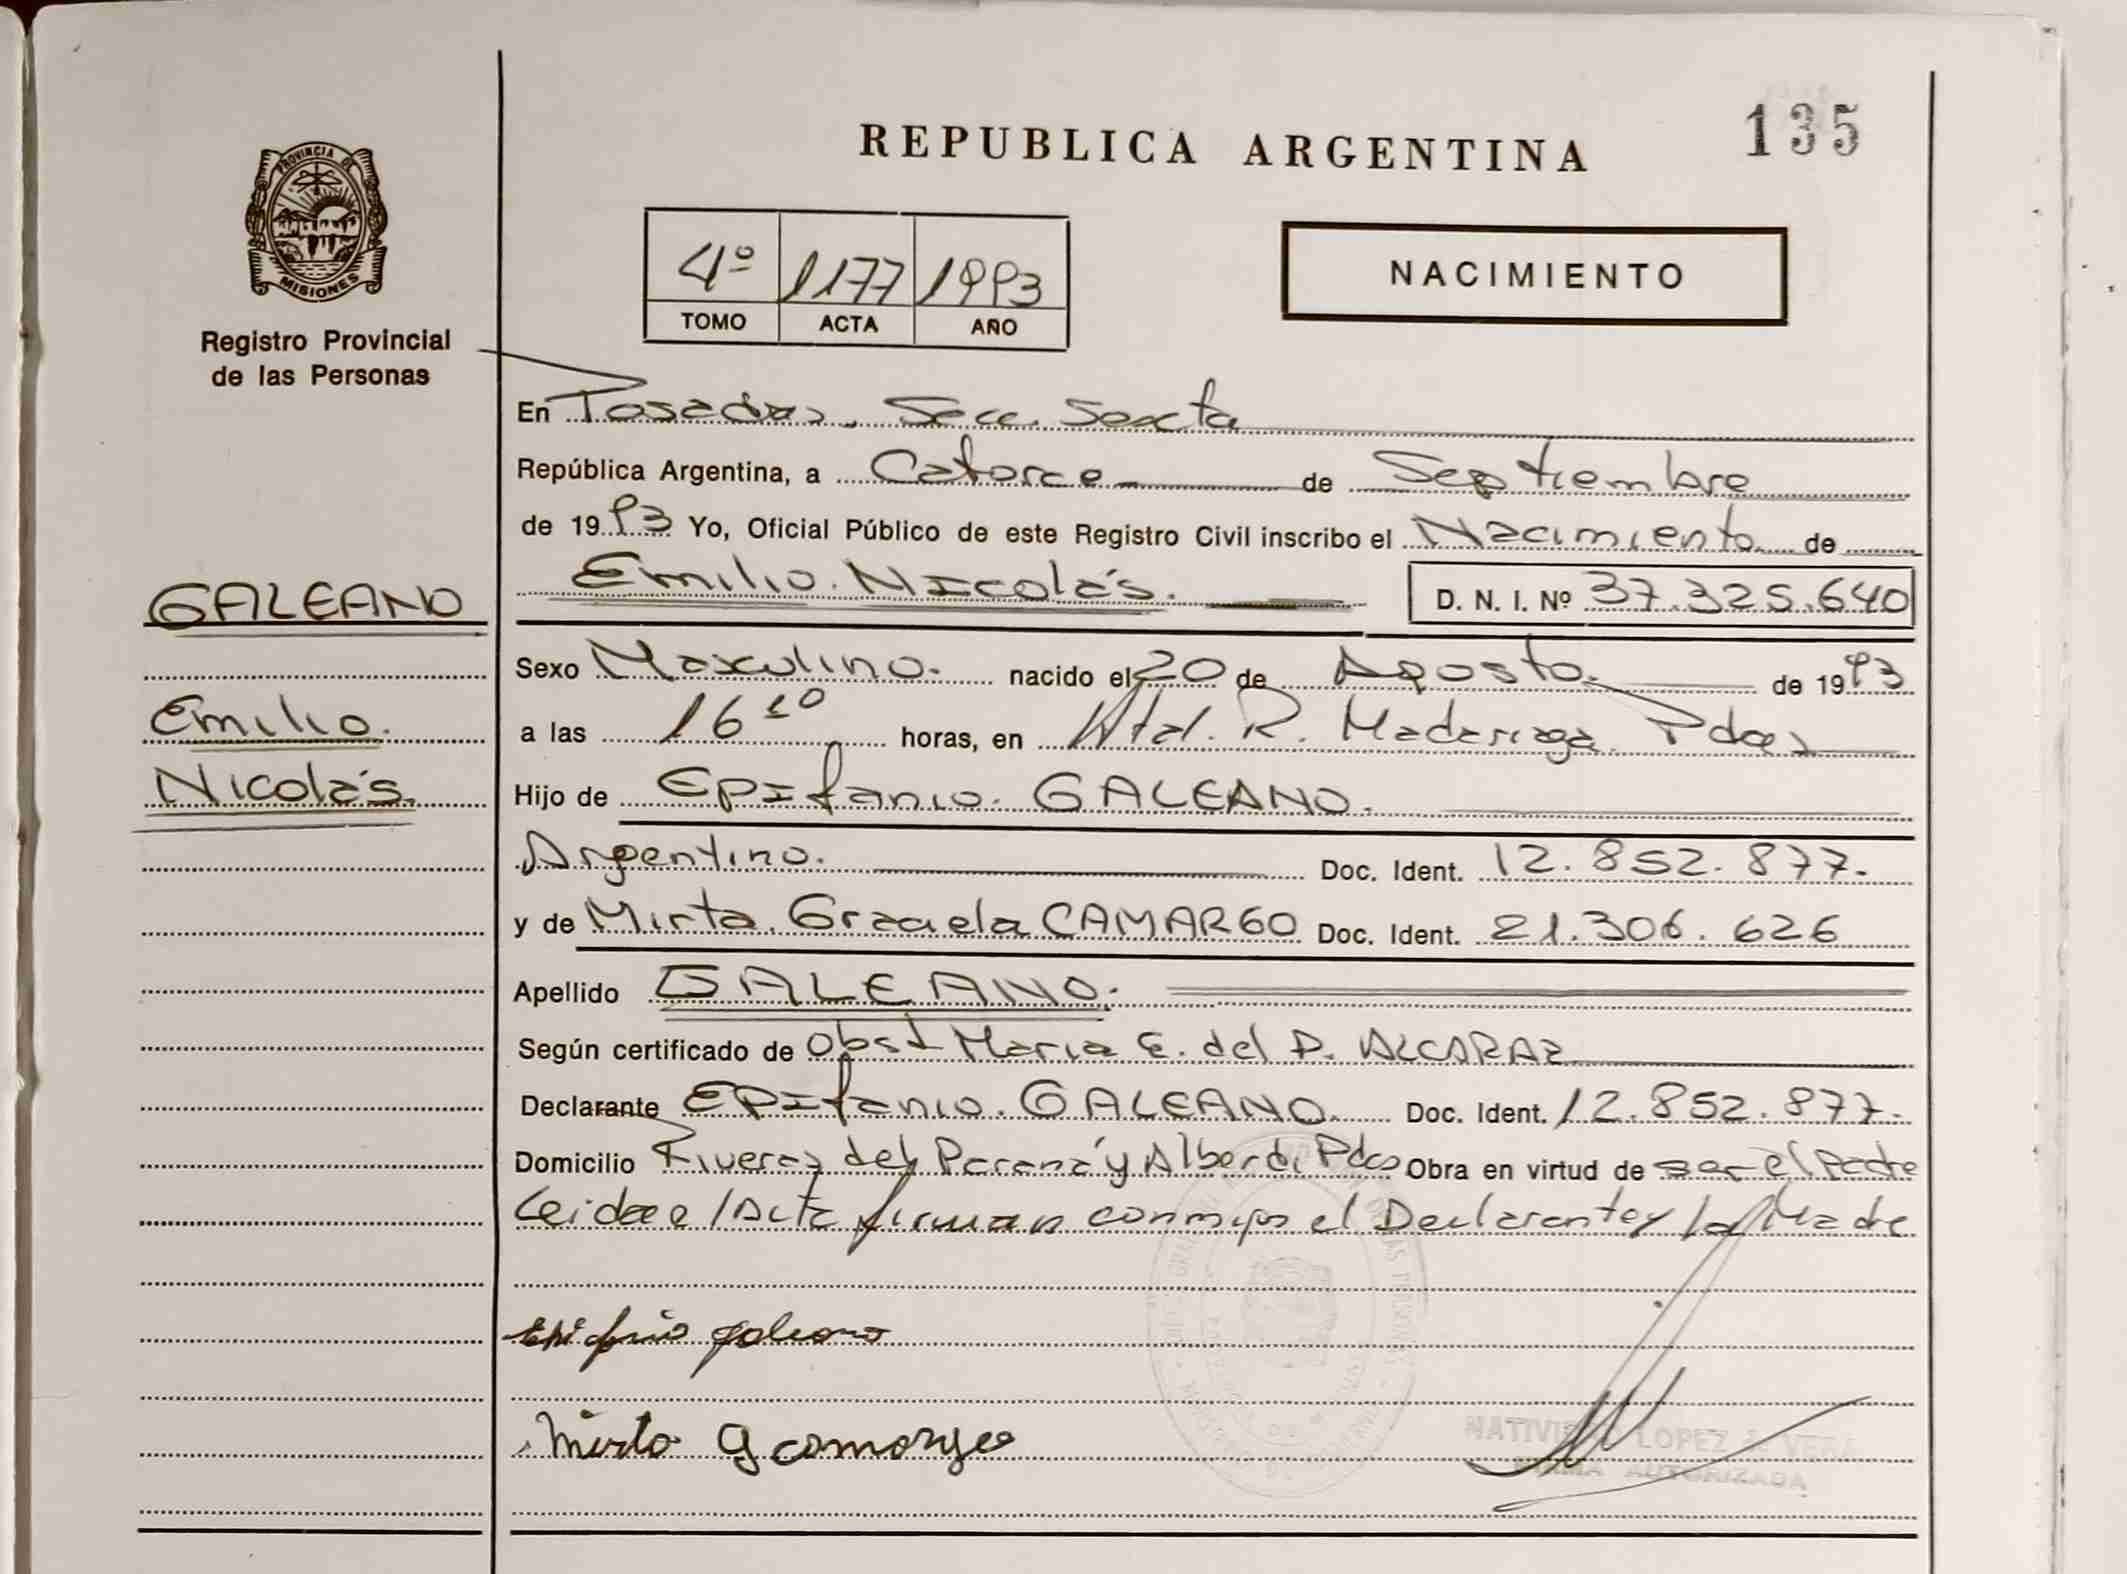 135
REPUBLICA ARGENTINA
PROVINCIA DE
MISIONES
Registro Provincial
de las Personas
4º 1177 1993
TOMO ACTA AÑO
NACIMIENTO
En Posadas, Secc. Sexta
República Argentina, a Catorce de Septiembre
de 1993 Yo, Oficial Público de este Registro Civil inscribo el Nacimiento de
Emilio Nicolás. D. N. I. Nº 37.325.640
GALEANO
Emilio.
Nicolás.
Sexo Masculino. nacido el 20 de Agosto. de 1993
a las 16 10 horas, en Htal. R. Madariaga Pdas
Hijo de Epifanio. GALEANO.
Argentino. Doc. Ident. 12.852.877.
y de Mirta. Graciela CAMARGO Doc. Ident. 21.306.626
Apellido GALEANO.
Según certificado de Obst María E. del P. ALCARAZ
Declarante Epifanio. GALEANO. Doc. Ident. 12.852.877.
Domicilio Riveras del Paraná y Alberdi Pdas Obra en virtud de ser el Padre
Leída e/Acta firman conmigo el Declarante y la Madre
Epifanio galeano
Mirta G camargo
NATIVIDAD LOPEZ de VERA
FIRMA AUTORIZADA